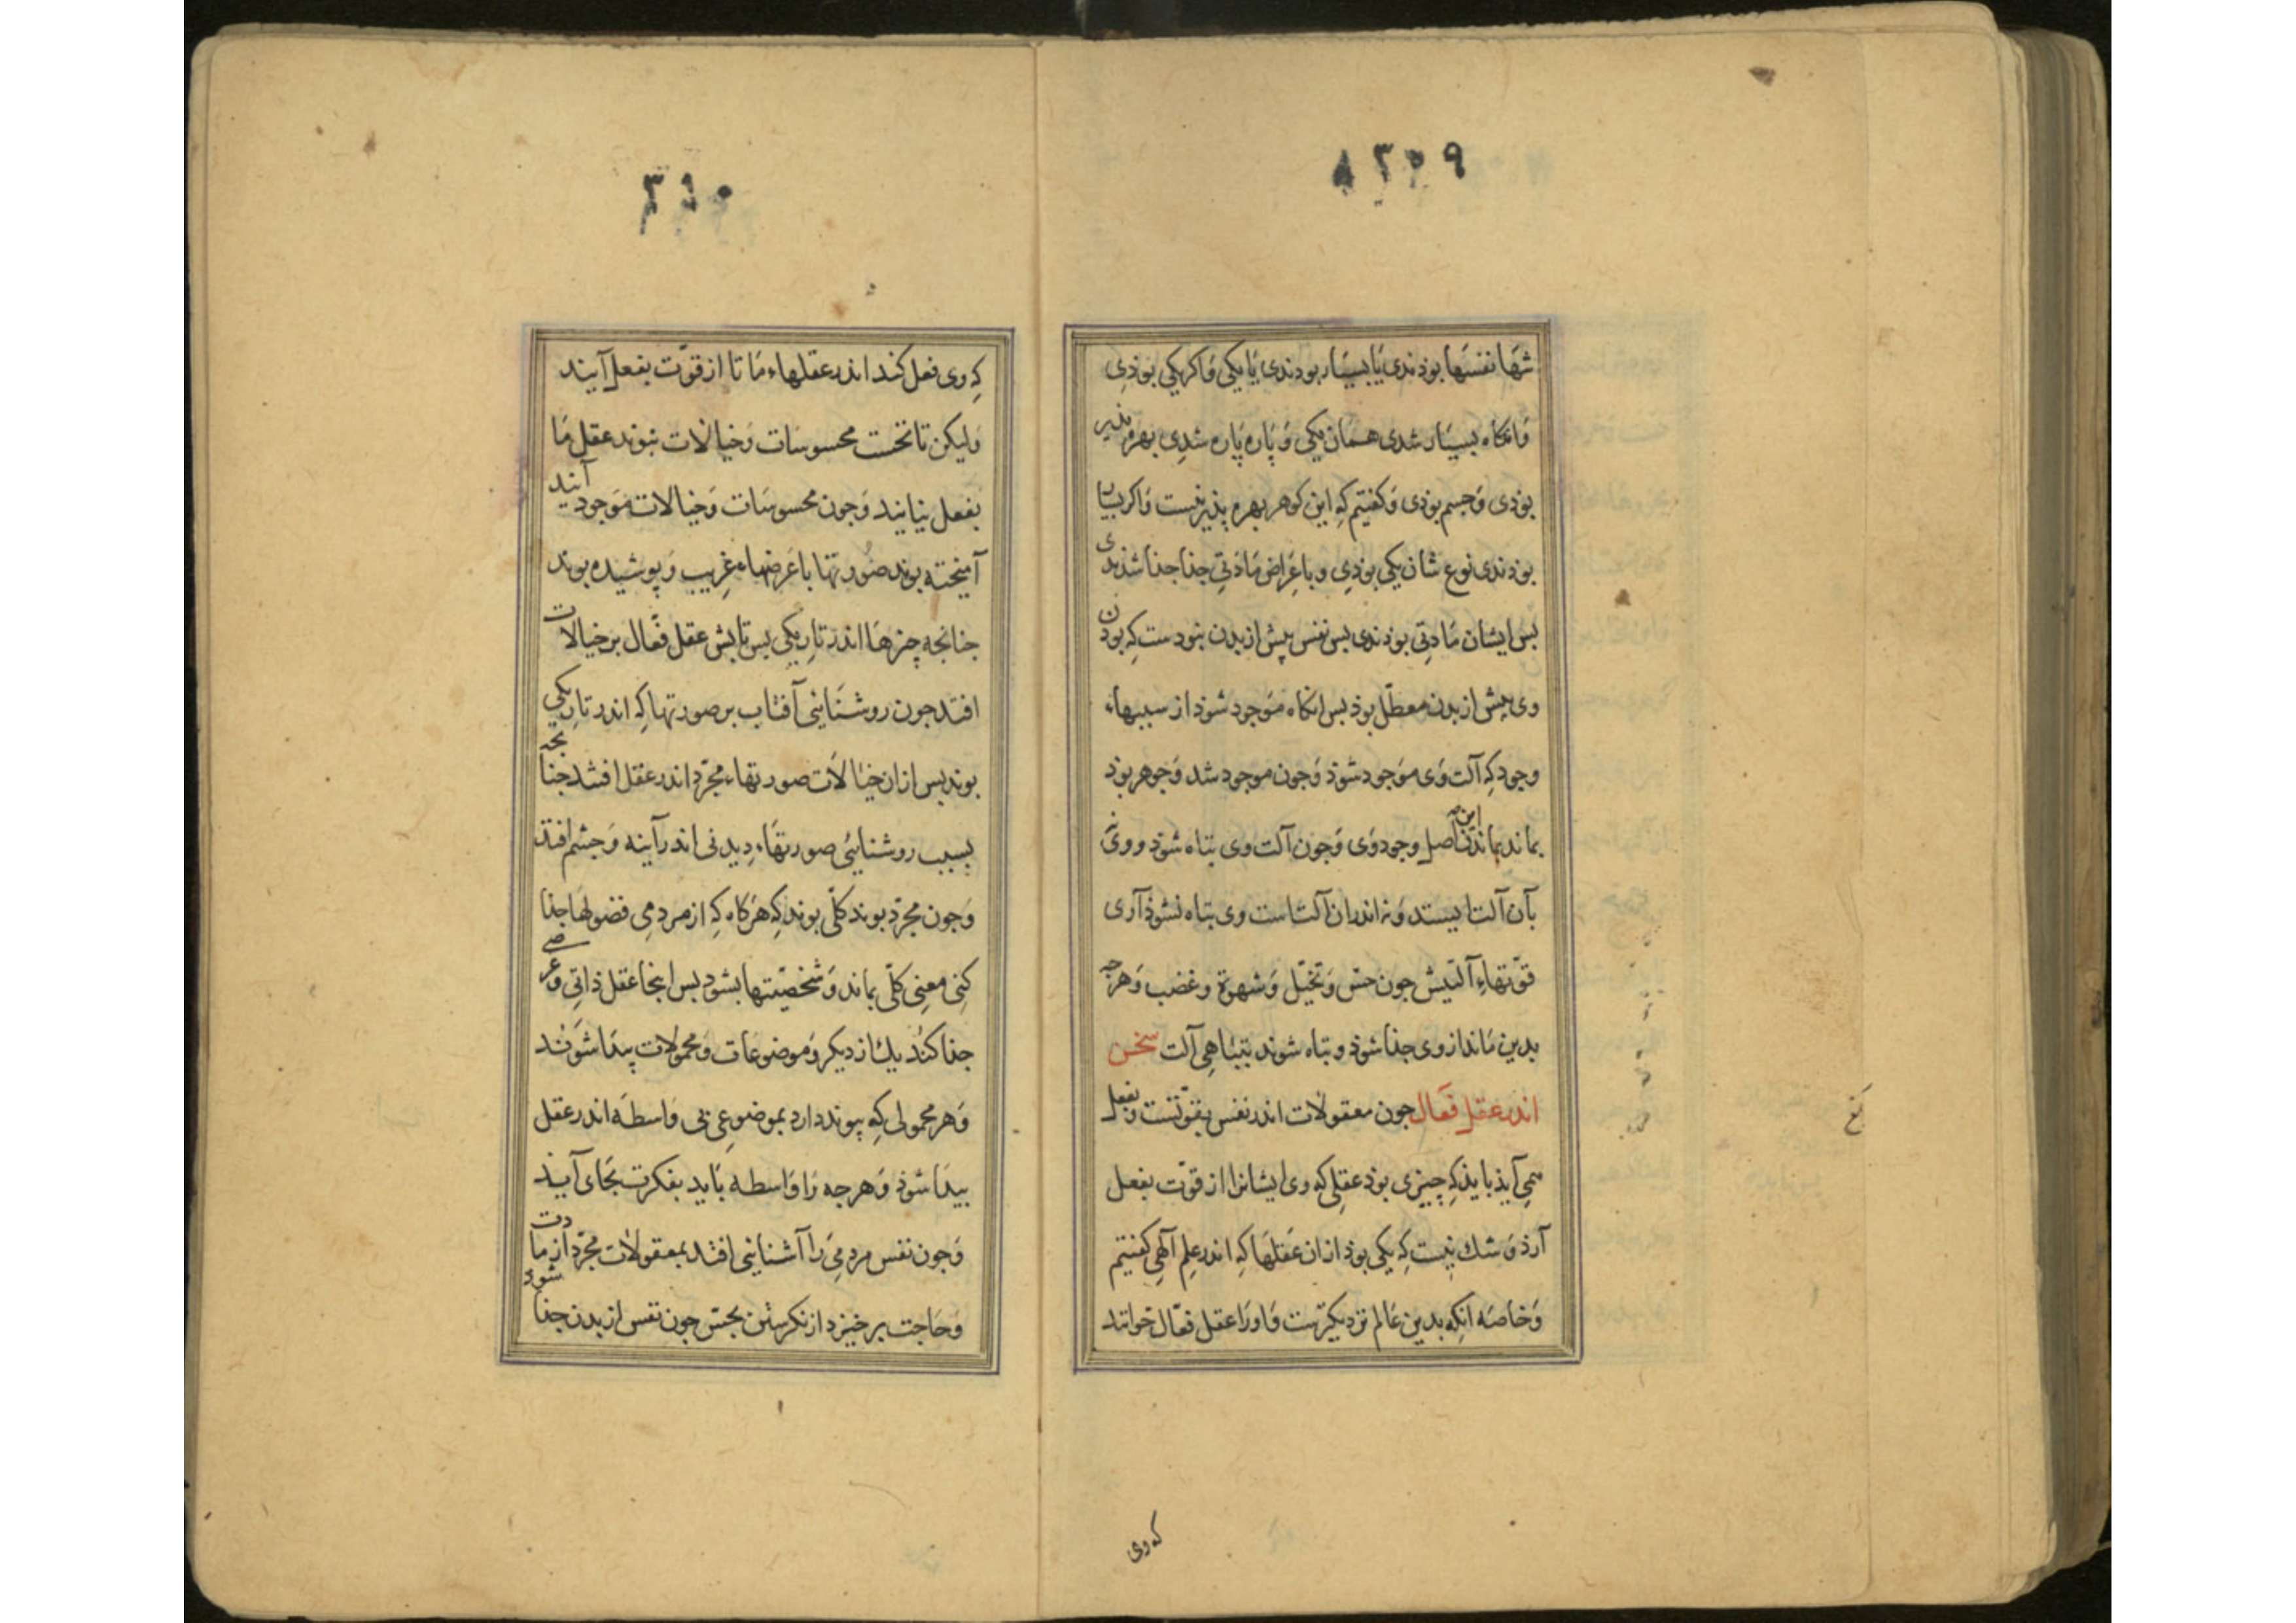 ۳۰۹
شها نفسها بوذندی یا بسیار بودندی یا یکی وَاکر یکی بوذی
وَانکاه بسیار شدی همان یکی وَ پاره پاره شدی بهره پذیر
بوذی وَجسم بوذی وَکفتیم کِه این کوهر بهره پذیر نیست وَاکر بسیار
بوذندی نوع شان یکی بوذِی وباعراض مَادّتی جذا جذا شذندی
بس ایشان مَادتی بوذندی بس نفس پیش از بدن نبودست کِه بوذن
وی پیش از بدن معطّل بوذ بس انکاه مَوجود شوذ از سببهاء
وجود کِه آلت وَی موَجود شوَذ وَجون موجود شد وَجوهر بوَذ
بماند بماندن این اصل وجود وَی وَجون آلت وی تباه شوَذ و وی نه
بآن آلت ایستد وَنه اندر ان آلتست وی تباه نشوذ آری
قوّتهاءِ آلتیش جون حسّ وَتخیّل وَشهوة وغضب وَهرجه
بدین مَاند از وی جذا شوذ و تباه شوند بتباهِی آلت سخن
اندر عقل فَعال جون معقولات اندر نفس بقوّتست وبفعل
همی آیذ بایذ کِه چیزی بوذ عقلی کِه وی ایشانرا از قوّت بفعل
آرذ وَ شك نیست کِه یکی بوذ از ان عَقلهَا کِه اندر علِم آلهی کفتیم
وَخاصَه انکِه بدین عَالم نزدیکترست وَاورَا عقل فعّال خوانند
کَه وی
۳۱۰
کِه وی فعل کند اندر عقلهاء مَا تا از قوّت بفعل آیند
وَلیکن تا نخست محسوسَات وَخیالات نبوند عقل مَا
بفعل نیایند وَجون محسوسَات وَخیالات مَوَجود آیند
آمیخته بوند صُورتها با عَرضهاء غرِیب وَپوشیده بوند
جنانجه چزهَا اندر تاریکی بس تابش عقل فعّال بر خیالات
افتد جون روشنَائی آفتاب بر صورتها کِه اندر تاریکی
بوند بس از ان خیالاَت صورتهاء مجرّد اندر عقل افتد جنانجه
بسبب روشنائی صورتهَاء دِیدنی اندر آینه وَ جشم افتد
وَجون مجرّد بوند کلّی بوند کِه هَرکاه کِه از مردمِی فضولهَا جذا
کنِی معنِی کلّی بماند وَشخصیّتها بشود بس اینجا عقل ذاتِی وعرضی
جذا کند یك از دیکر وَموضوعَات وَمحمولات پیدا شوَند
وَهر محمولی کِه پیوند دارد بموضوعی بی وَاسطَه اندر عقل
پیدَا شوَذ وَهرجه رَا وَاسطه بَاید بفکرت بجَای آیند
وَجون نفس مردمِی رَا آشنایئی افتد بمعقولات مجرّد از مادت
وَحَاجت برخیزد از نکرستن بحسّ جون نفس از بدن جذا شود